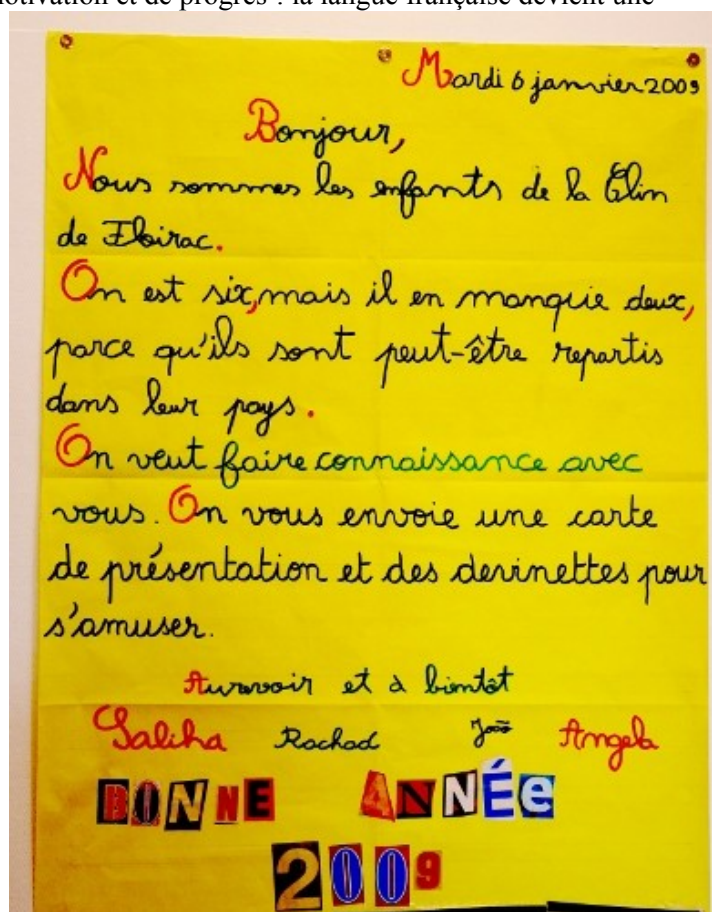 motivation et de progrès : la langue française devient une
Mardi 6 janvier 2009
Bonjour,
Nous sommes les enfants de la Clin
de Floirac.
On est six, mais il en manque deux,
parce qu'ils sont peut-être repartis
dans leur pays.
On veut faire connaissance avec
vous. On vous envoie une carte
de présentation et des devinettes pour
s'amuser.
Aurevoir et à bientôt
Saliha Rachad João Angela
BONNE ANNÉE
2009